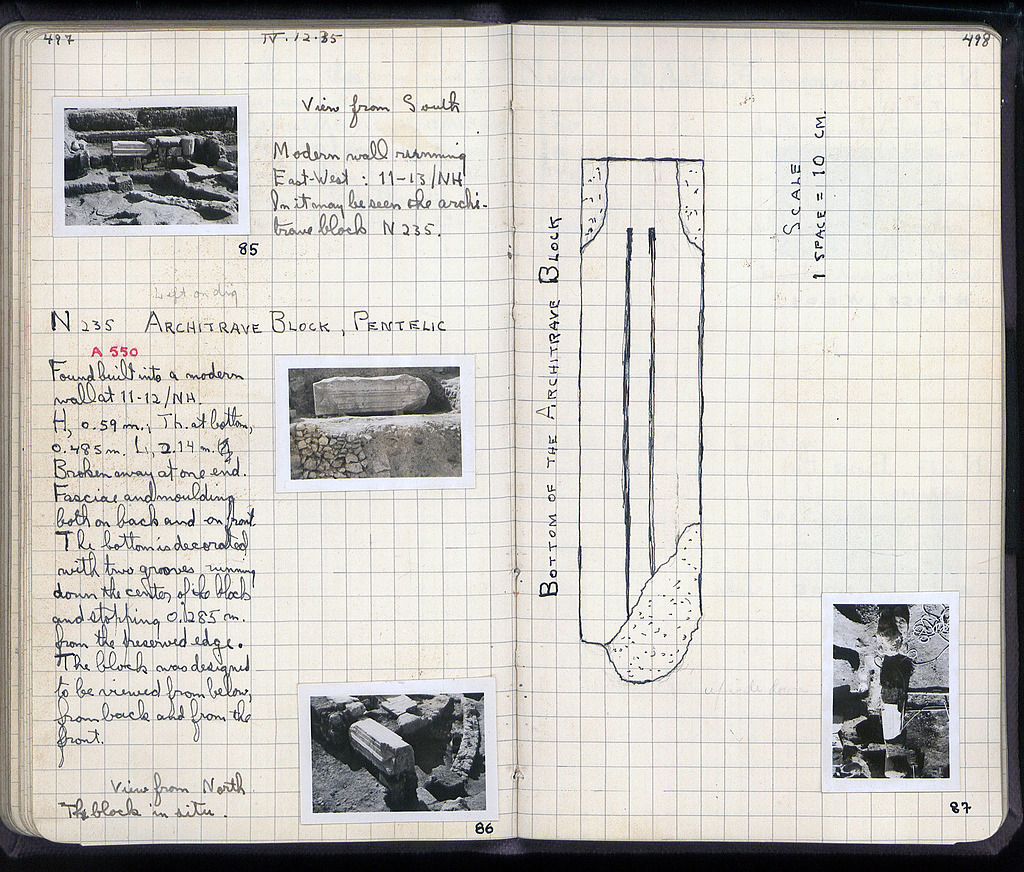 497
IV.12.35
View from South
Modern wall running
East-West : 11-13/NH
In it may be seen the archi-
trave block N 235.
85
Left on dig
N 235 ARCHITRAVE BLOCK, PENTELIC
A 550
Found built into a modern
wall at 11-12/NH.
H, 0.59 m., Th. at bottom,
0.485 m. L, 2.14 m.
Broken away at one end.
Fasciae and moulding
both on back and on front
The bottom is decorated
with two grooves running
down the center of the block
and stopping 0.285 m.
from the preserved edge.
The block was designed
to be viewed from below,
from back and from the
front.
View from North
The block in situ.
86
498
BOTTOM OF THE ARCHITRAVE BLOCK
SCALE
1 SPACE = 10 CM.
87